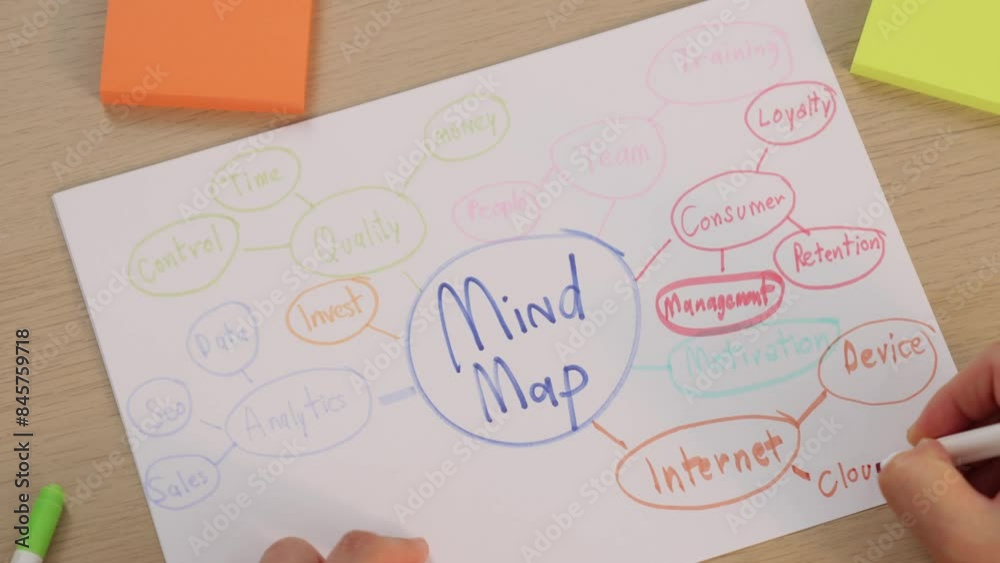 Training
Loyalty
Money
Team
Time
People
Consumer
Control
Quality
Retention
Invest
Management
Mind
Map
Motivation
Device
SEO
Analytics
Sales
Internet
Adobe Stock
Adobe Stock | #845759718